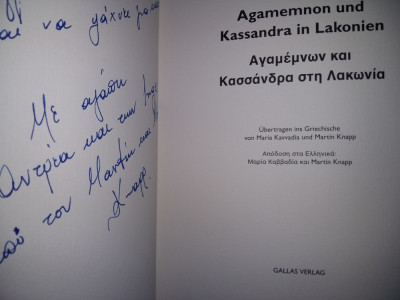 να ψάχνετε
Με αγάπη
και την
από τον Martin και
Agamemnon und
Kassandra in Lakonien
Αγαμέμνων και
Κασσάνδρα στη Λακωνία
Übertragen ins Griechische
von Maria Kavvadia und Martin Knapp
Απόδοση στα Ελληνικά:
Μαρία Καββαδία και Martin Knapp
GALLAS VERLAG